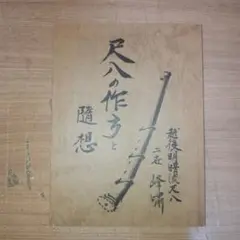 尺八の作り方と
隨想
越後明暗流尺八
二世 峰嘯